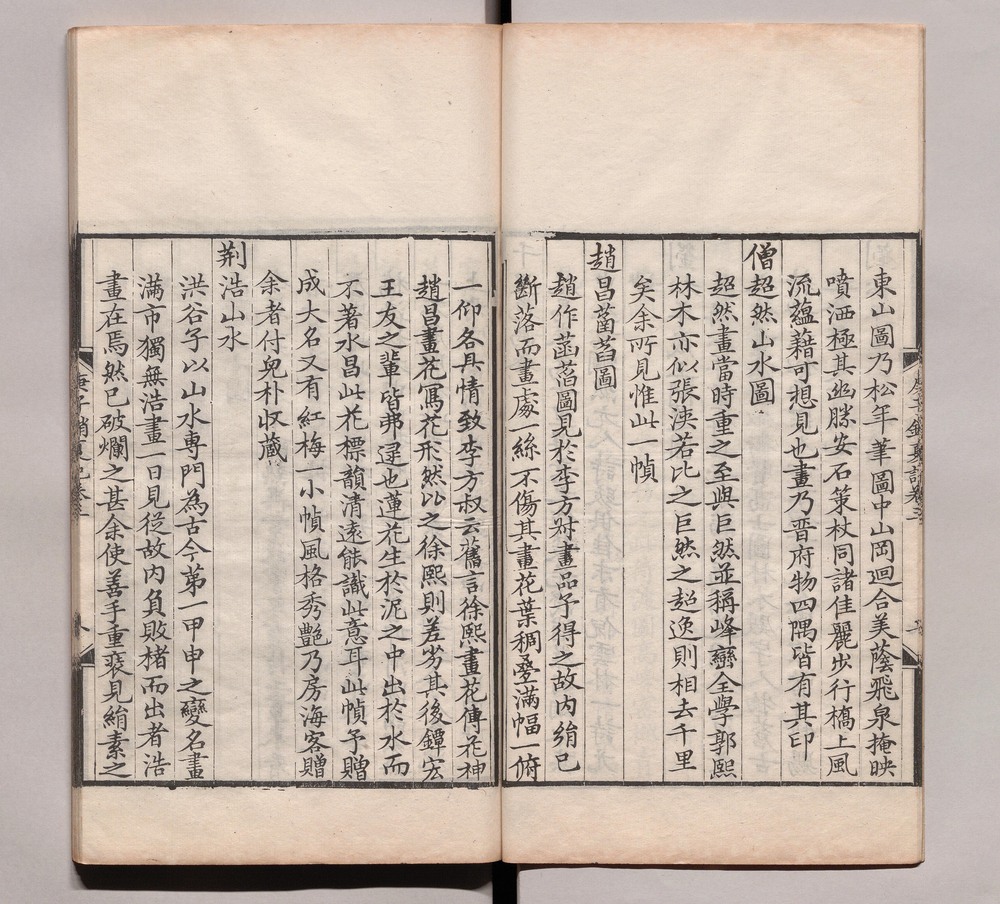 東山圖乃松年筆圖中山岡迴合美蔭飛泉掩映
噴洒極其幽勝安石策杖同諸佳麗出行橋上風
流蘊藉可想見也畫乃晋府物四隅皆有其印
僧超然山水圖
超然畫當時重之至與巨然並稱峰巒全學郭熙
林木亦似張浹若比之巨然之超逸則相去千里
矣余所見惟此一幀
趙昌菡萏圖
趙作菡萏圖見於李方尗畫品予得之故内絹已
斷落而畫處一絲不傷其畫花葉稠疊满幅一俯
一仰各具情致李方叔云舊言徐熙畫花傳花神
趙昌畫花寫花形然比之徐熙則差劣其後鐔宏
王友之輩皆弗逮也蓮花生於泥之中出於水而
不著水昌此花標韻清遠能識此意耳此幀予贈
成大名又有紅梅一小幀風格秀艷乃房海客贈
余者付兒朴收蔵
荆浩山水
洪谷子以山水専門為古今苐一甲申之變名畫
满市獨無浩畫一日見從故内負敗楮而出者浩
畫在焉然已破爛之甚余使善手重裝見絹素之
庚子銷夏記卷三